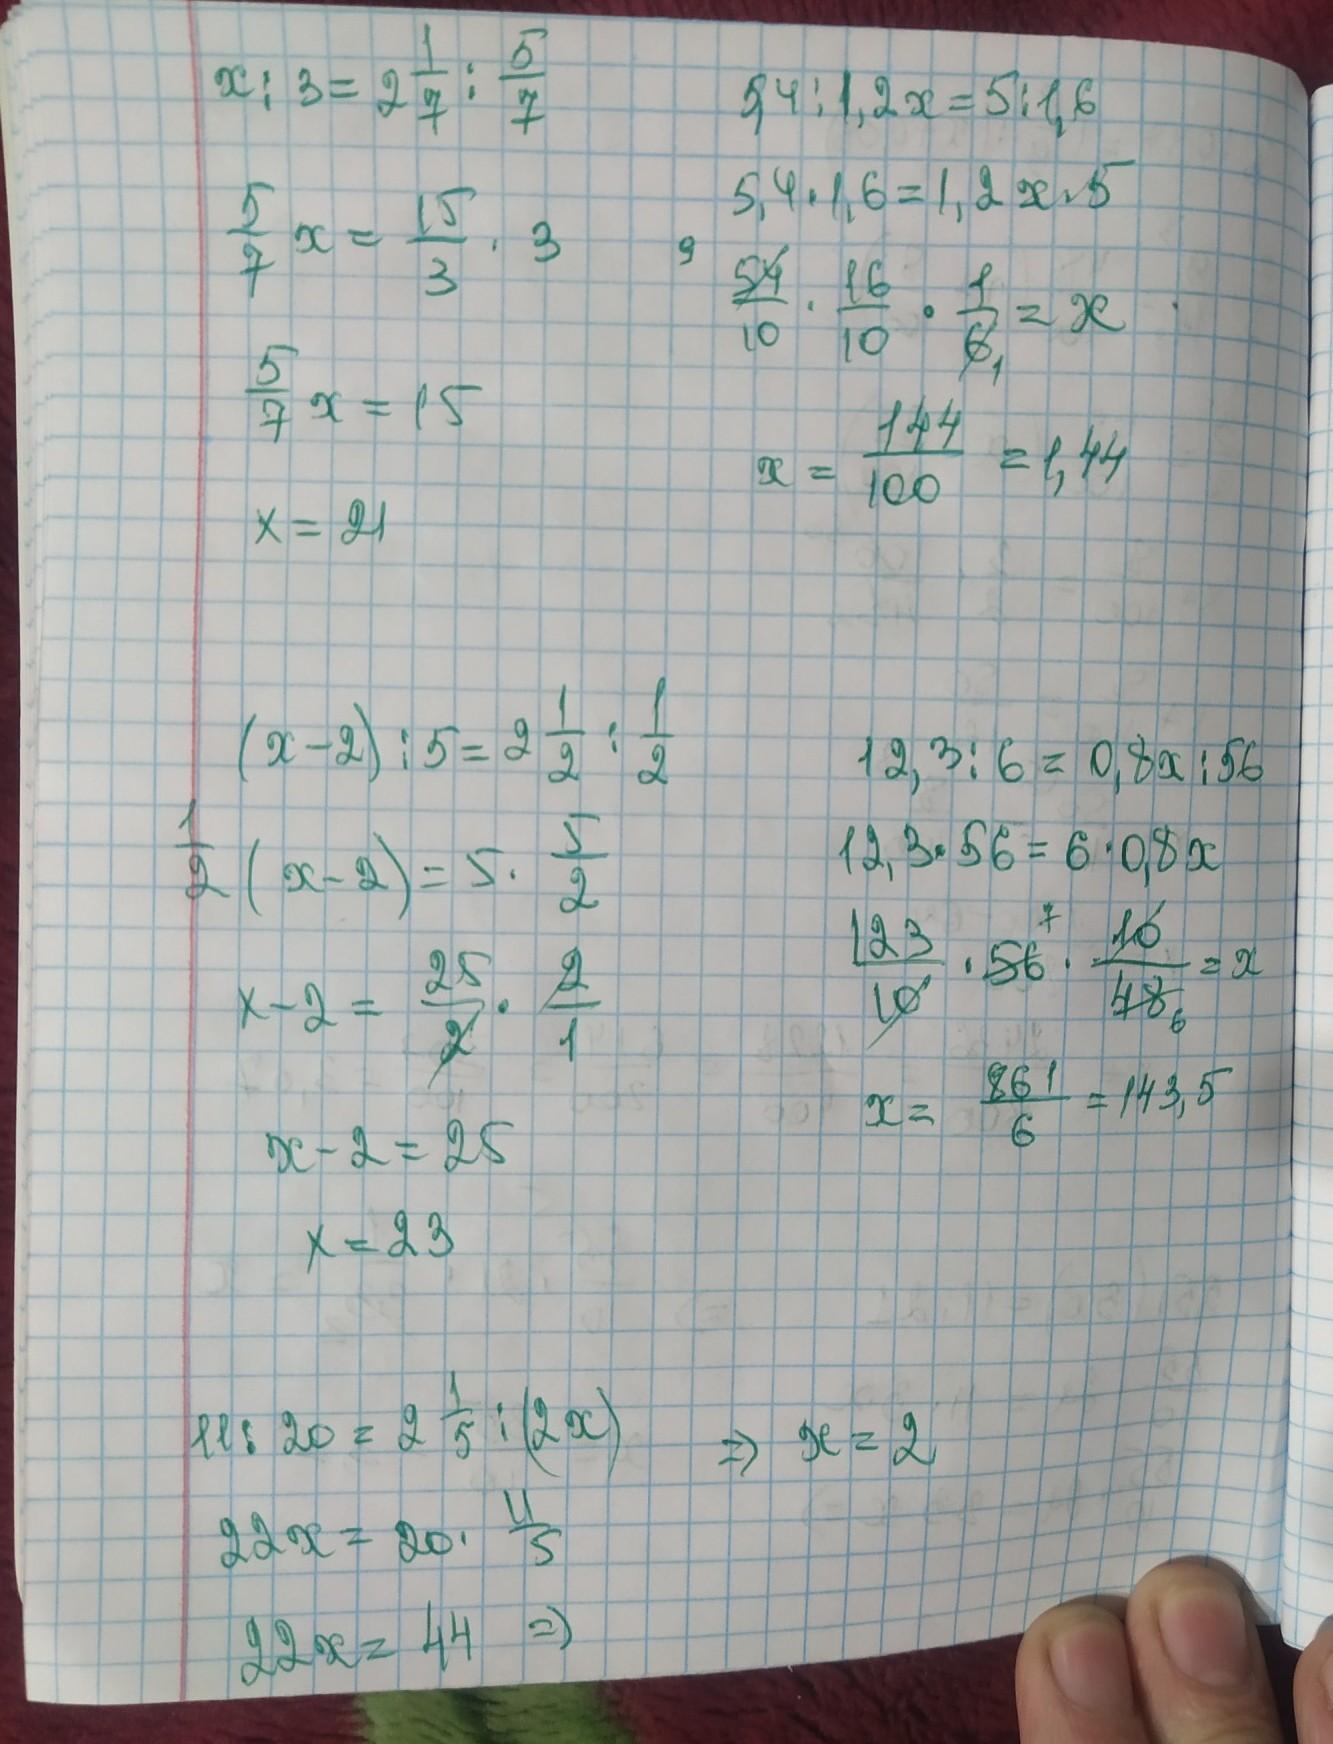 x : 3 = 2 1/7 : 5/7
5/7 x = 15/3 · 3
5/7 x = 15
x = 21
5,4 : 1,2x = 5 : 1,6
5,4 · 1,6 = 1,2x · 5
9 54/10 · 16/10 · 1/6 1 = x
x = 144/100 = 1,44
(x - 2) : 5 = 2 1/2 : 1/2
1/2 (x - 2) = 5 · 5/2
x - 2 = 25/2 · 2/1
x - 2 = 25
x = 23
12,3 : 6 = 0,8x : 56
12,3 · 56 = 6 · 0,8x
123/10 · 56 7 · 10/48 6 = x
x = 861/6 = 143,5
11 : 20 = 2 1/5 : (2x)
22x = 20 · 11/5
22x = 44 ⇒
⇒ x = 2